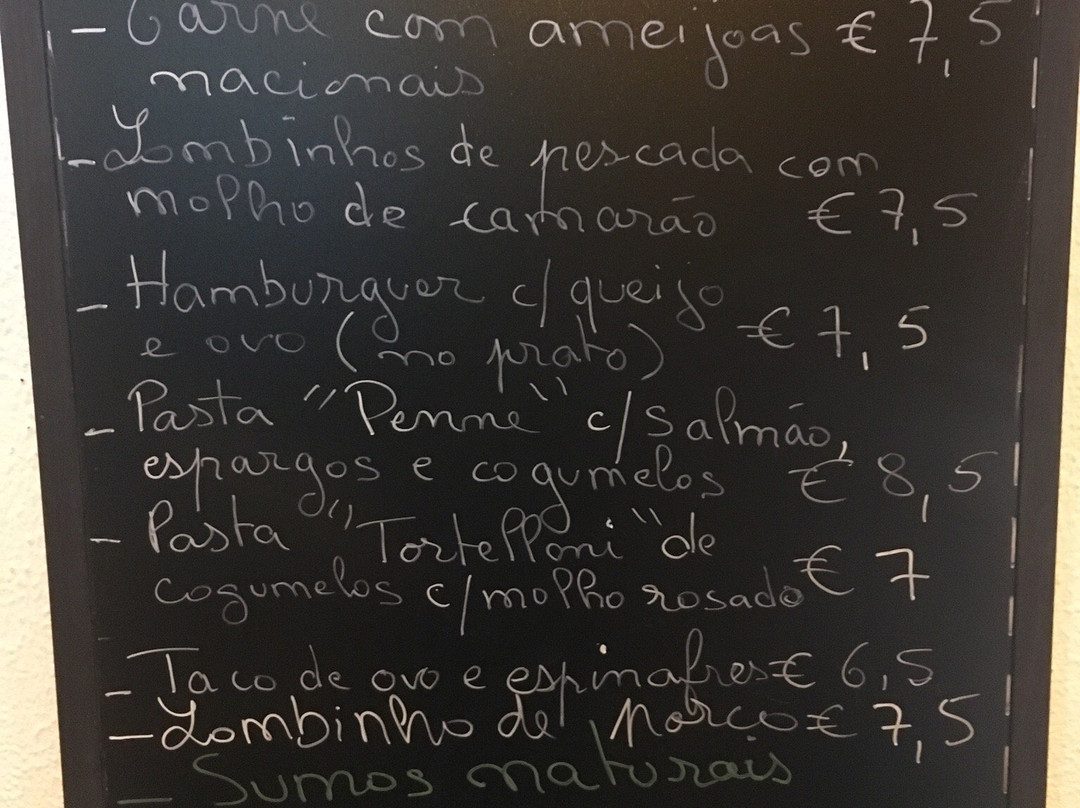 - Carne com ameijoas € 7,5
nacionais
- Lombinhos de pescada com
molho de camarão € 7,5
- Hamburguer c/ queijo
e ovo (no prato) € 7,5
- Pasta "Penne" c/ salmão,
espargos e cogumelos € 8,5
- Pasta "Tortelloni" de
cogumelos c/ molho rosado € 7
- Taco de ovo e espinafres € 6,5
- Lombinho de porco € 7,5
- Sumos naturais